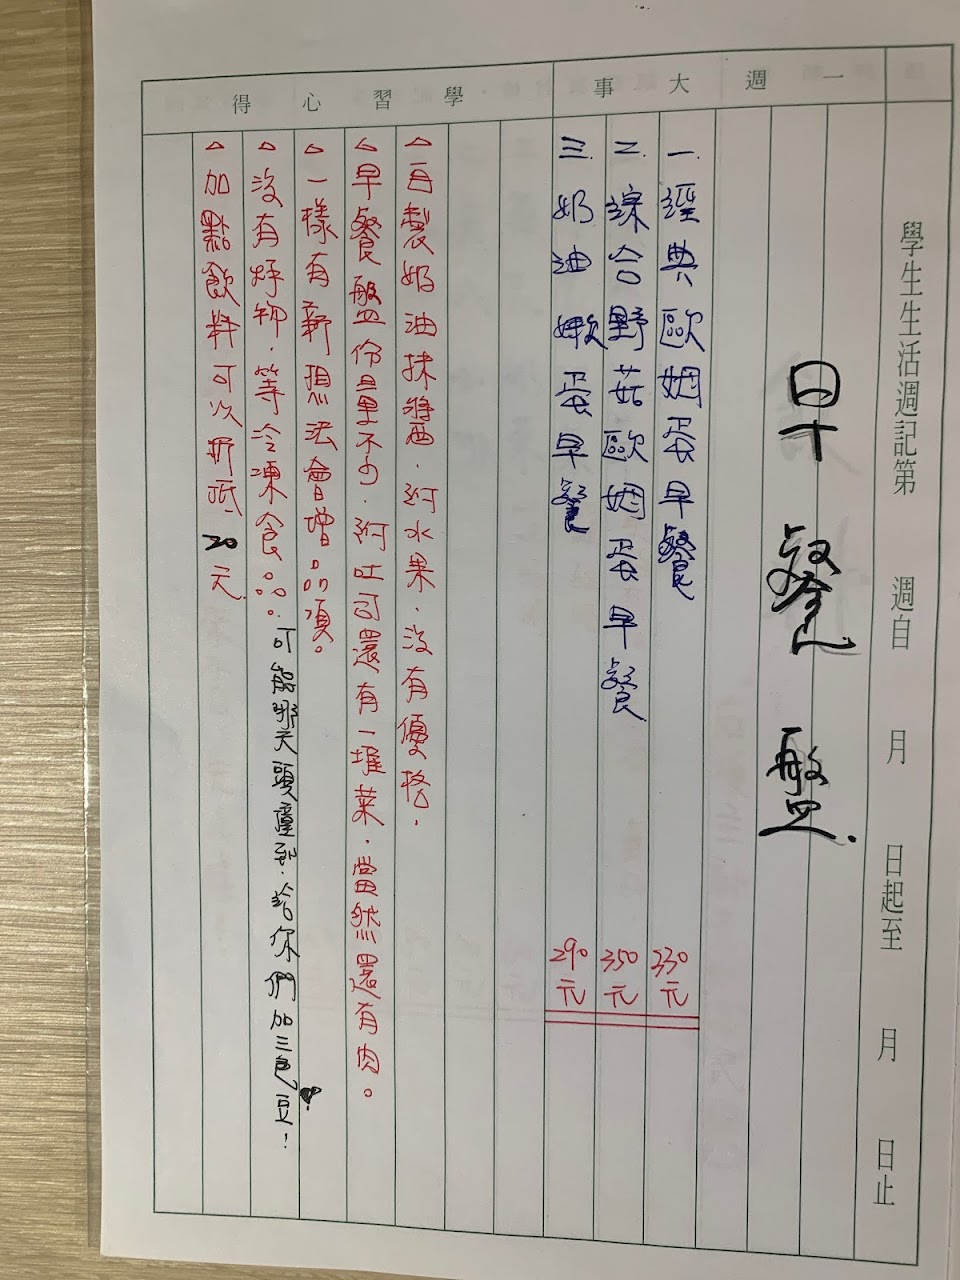 學生生活週記第　週自　月　日起至　月　日止
早餐盤.
一週大事
一.經典歐姆蛋早餐 330元
二.綜合野菇歐姆蛋早餐 350元
三.奶油嫩蛋早餐 290元
學習心得
△自製奶油抹醬.附水果.沒有優格.
△早餐盤份量不少.附吐司還有一堆菜.當然還有肉。
△一樣有新想法會增品項。
△沒有拌物.等冷凍食品.可能哪天頭撞到.給你們加三色豆!
△加點飲料可以折抵20元.